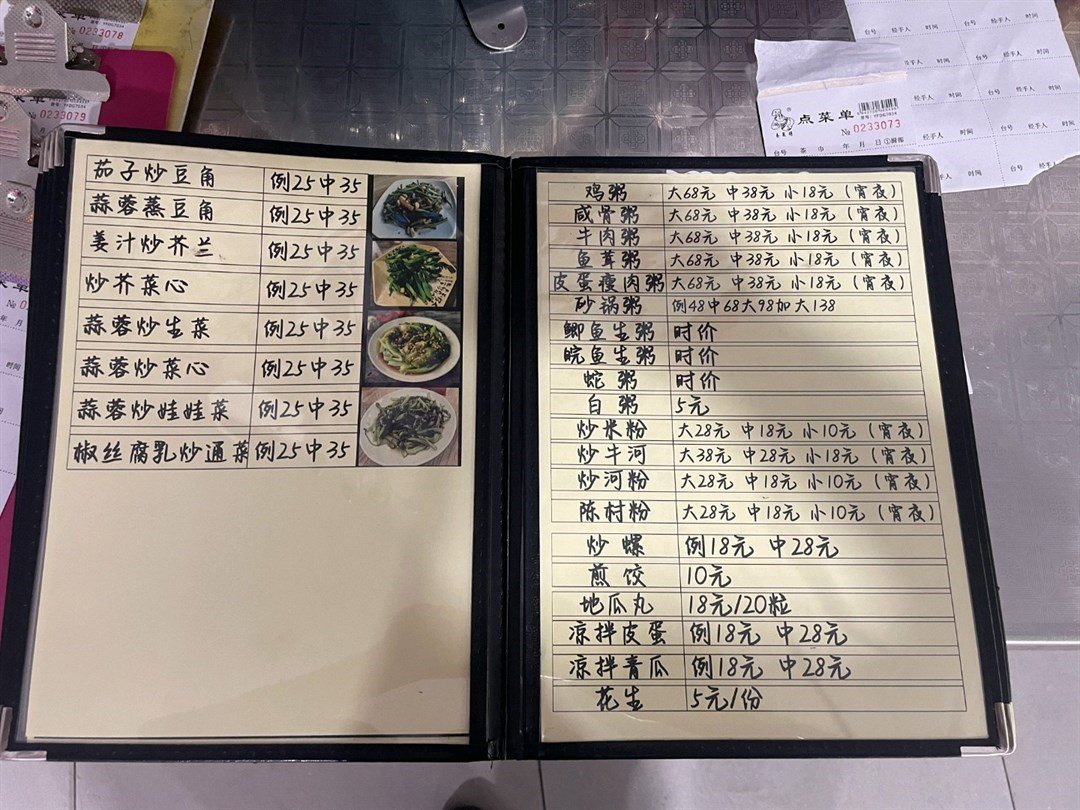 茄子炒豆角 例25中35
蒜蓉蒸豆角 例25中35
姜汁炒芥兰 例25中35
炒芥菜心 例25中35
蒜蓉炒生菜 例25中35
蒜蓉炒菜心 例25中35
蒜蓉炒娃娃菜 例25中35
椒丝腐乳炒通菜 例25中35
鸡粥 大68元 中38元 小18元（宵夜）
咸骨粥 大68元 中38元 小18元（宵夜）
牛肉粥 大68元 中38元 小18元（宵夜）
鱼茸粥 大68元 中38元 小18元（宵夜）
皮蛋瘦肉粥 大68元 中38元 小18元（宵夜）
砂锅粥 例48中68大98加大138
鲫鱼生粥 时价
皖鱼生粥 时价
蛇粥 时价
白粥 5元
炒米粉 大28元 中18元 小10元（宵夜）
炒牛河 大38元 中28元 小18元（宵夜）
炒河粉 大28元 中18元 小10元（宵夜）
陈村粉 大28元 中18元 小10元（宵夜）
炒螺 例18元 中28元
煎饺 10元
地瓜丸 18元/20粒
凉拌皮蛋 例18元 中28元
凉拌青瓜 例18元 中28元
花生 5元/份
点菜单
№ 0233073
台号 茶市 年 月 日
台号 经手人 时间
台号 经手人 时间
台号 经手人 时间
菜单
0233078
菜单
№ 0233079